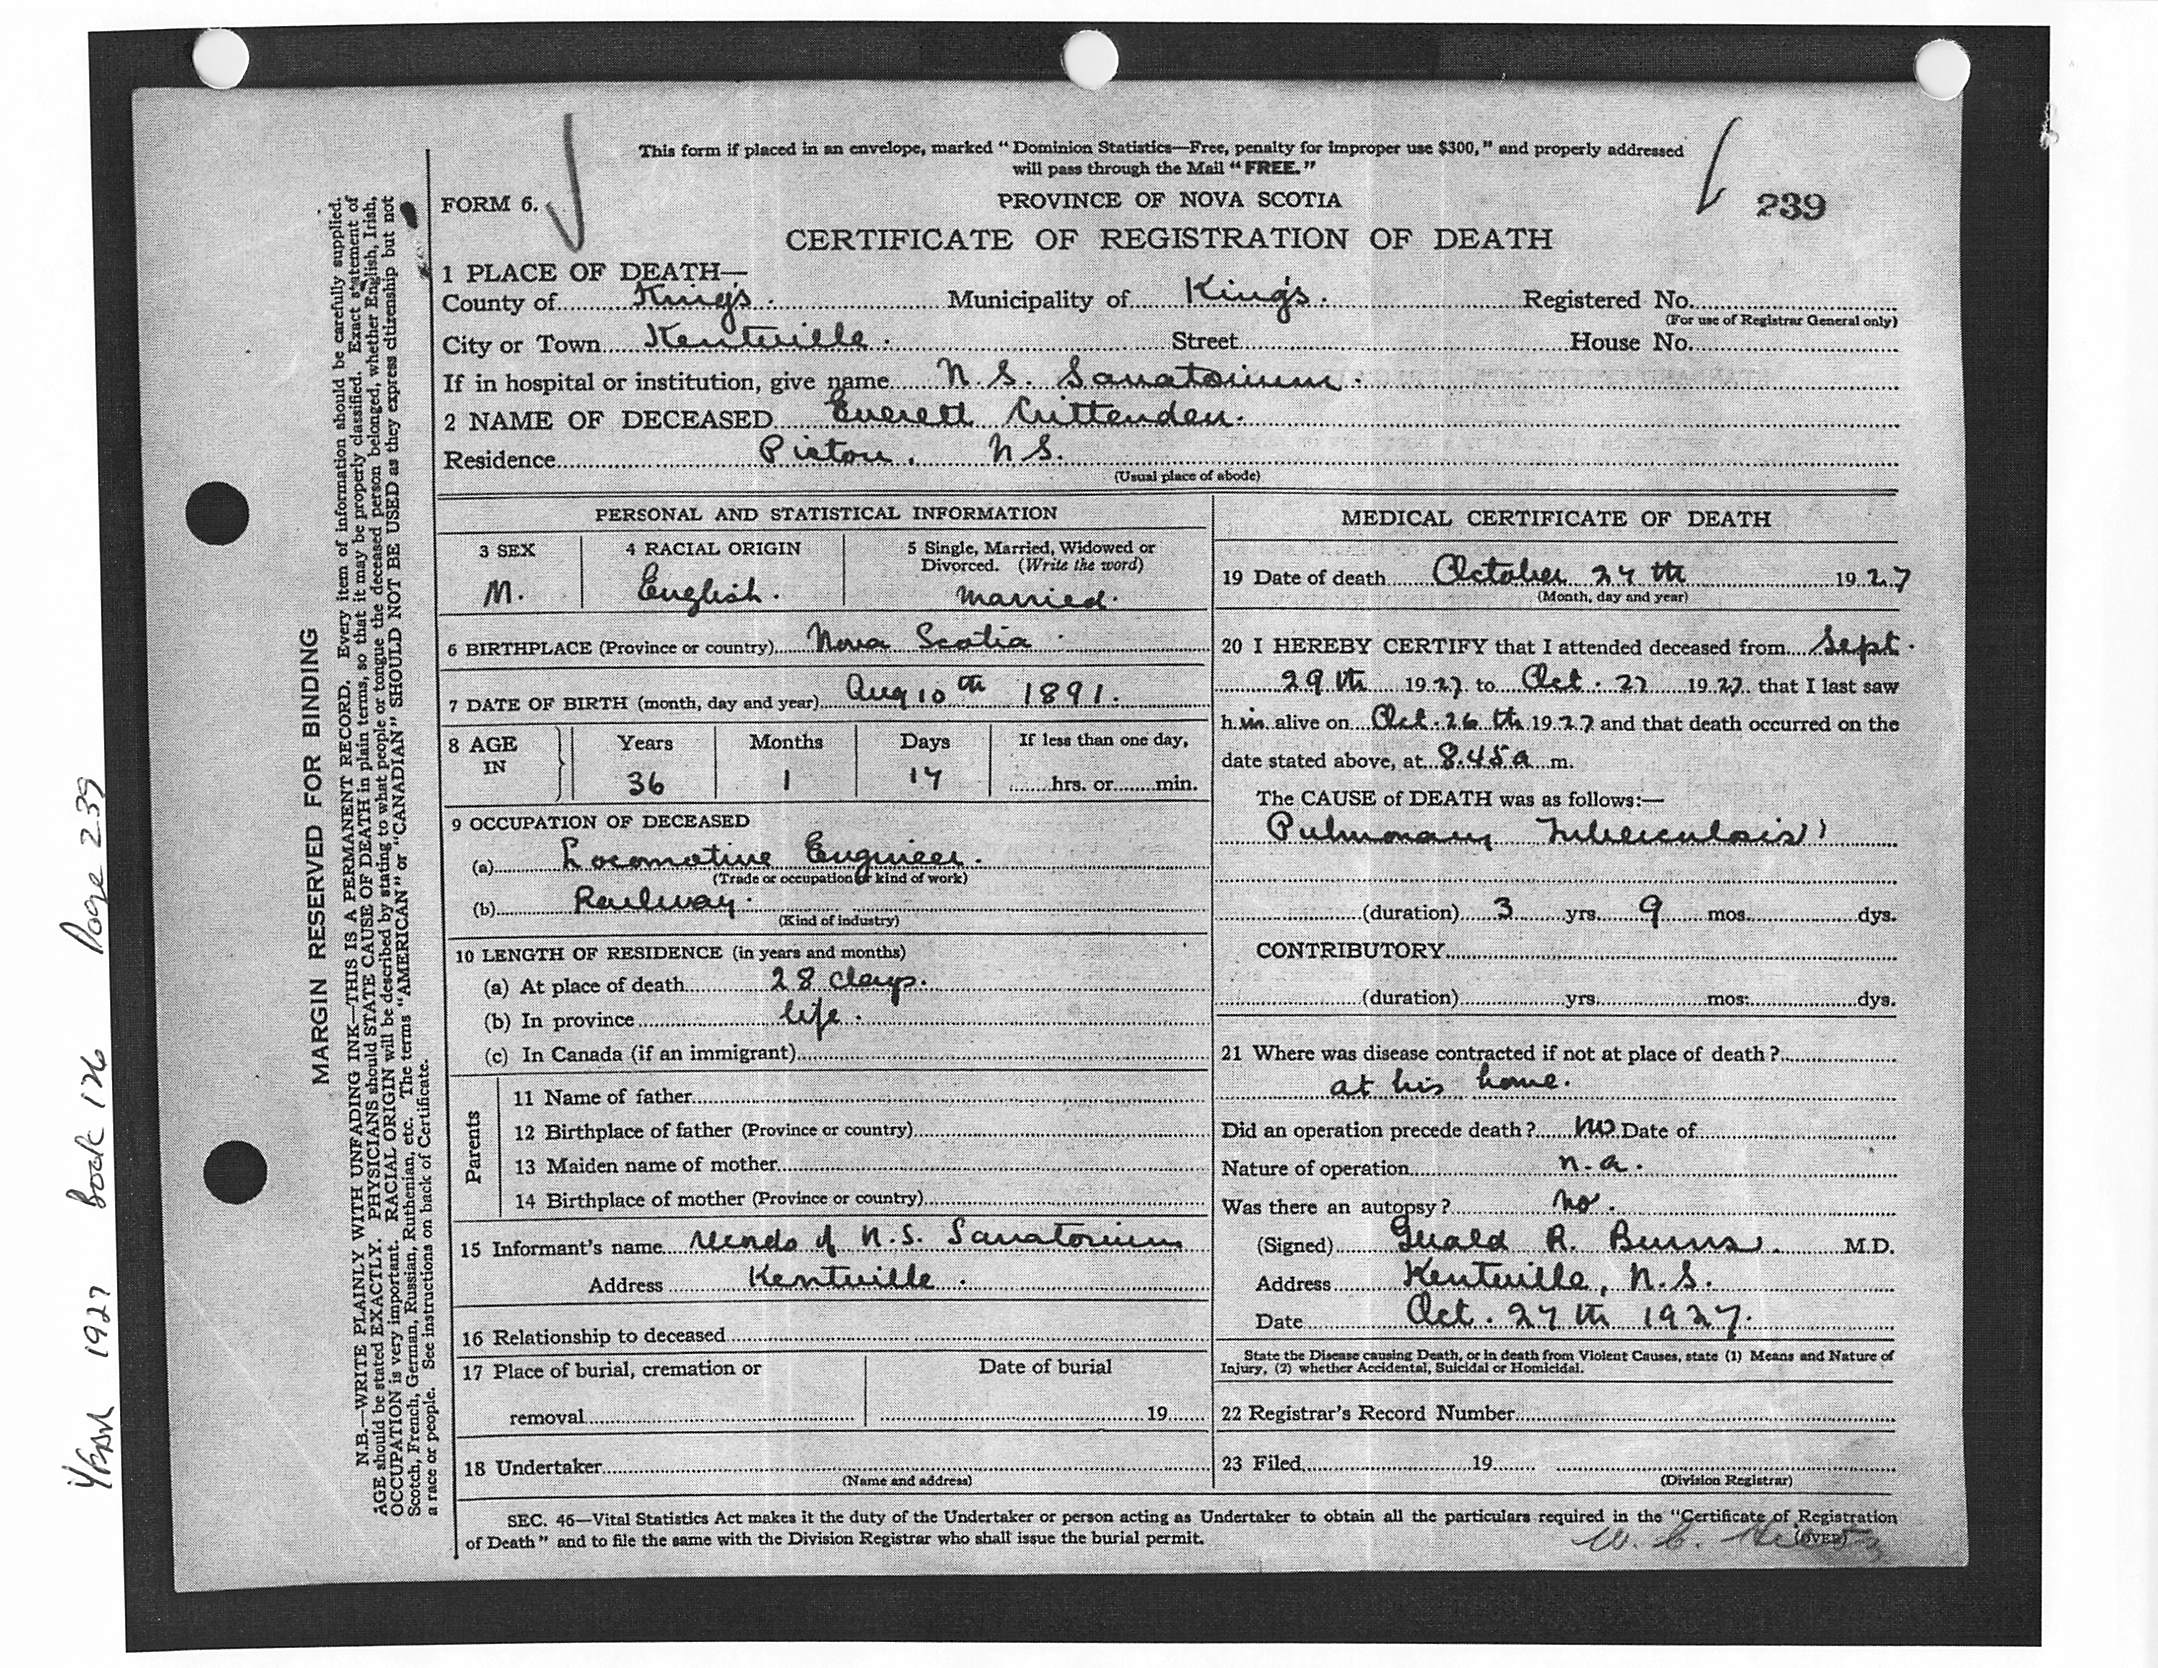 This form if placed in an envelope, marked "Dominion Statistics—Free, penalty for improper use $300," and properly addressed
will pass through the Mail "FREE."
FORM 6.
PROVINCE OF NOVA SCOTIA
239
CERTIFICATE OF REGISTRATION OF DEATH
1 PLACE OF DEATH—
County of King's. Municipality of King's. Registered No.
(For use of Registrar General only)
City or Town Kentville. Street House No.
If in hospital or institution, give name N. S. Sanatorium.
2 NAME OF DECEASED Everett Crittenden.
Residence Pictou, N.S.
(Usual place of abode)
PERSONAL AND STATISTICAL INFORMATION
3 SEX
M.
4 RACIAL ORIGIN
English.
5 Single, Married, Widowed or
Divorced. (Write the word)
Married.
6 BIRTHPLACE (Province or country) Nova Scotia.
7 DATE OF BIRTH (month, day and year) Aug 10th 1891.
8 AGE IN
Years Months Days If less than one day,
36 1 17 hrs. or min.
9 OCCUPATION OF DECEASED
(a) Locomotive Engineer.
(Trade or occupation or kind of work)
(b) Railway.
(Kind of industry)
10 LENGTH OF RESIDENCE (in years and months)
(a) At place of death 28 days.
(b) In province life.
(c) In Canada (if an immigrant)
Parents
11 Name of father
12 Birthplace of father (Province or country)
13 Maiden name of mother
14 Birthplace of mother (Province or country)
15 Informant's name Records of N.S. Sanatorium
Address Kentville.
16 Relationship to deceased
17 Place of burial, cremation or Date of burial
removal 19
18 Undertaker
(Name and address)
MEDICAL CERTIFICATE OF DEATH
19 Date of death October 27th 1927
(Month, day and year)
20 I HEREBY CERTIFY that I attended deceased from Sept.
29th 1927 to Oct. 27 1927 that I last saw
him alive on Oct. 26th 1927 and that death occurred on the
date stated above, at 8.45a m.
The CAUSE of DEATH was as follows:—
Pulmonary Tuberculosis
(duration) 3 yrs. 9 mos. dys.
CONTRIBUTORY
(duration) yrs. mos. dys.
21 Where was disease contracted if not at place of death?
at his home.
Did an operation precede death? No Date of
Nature of operation n.a.
Was there an autopsy? No.
(Signed) Gerald R. Burns. M.D.
Address Kentville, N.S.
Date Oct. 27th 1927.
State the Disease causing Death, or in death from Violent Causes, state (1) Means and Nature of
Injury, (2) whether Accidental, Suicidal or Homicidal.
22 Registrar's Record Number
23 Filed 19
(Division Registrar)
SEC. 46—Vital Statistics Act makes it the duty of the Undertaker or person acting as Undertaker to obtain all the particulars required in the "Certificate of Registration
of Death" and to file the same with the Division Registrar who shall issue the burial permit.
(OVER)
W. C.
MARGIN RESERVED FOR BINDING
N.B.—WRITE PLAINLY WITH UNFADING INK—THIS IS A PERMANENT RECORD. Every item of information should be carefully supplied.
AGE should be stated EXACTLY. PHYSICIANS should STATE CAUSE OF DEATH in plain terms, so that it may be properly classified. Exact statement of
OCCUPATION is very important. RACIAL ORIGIN will be described by stating to what people or tongue the deceased person belonged, whether English, Irish,
Scotch, French, German, Russian, Ruthenian, etc. The terms "AMERICAN" or "CANADIAN" SHOULD NOT BE USED as they express citizenship but not
a race or people. See instructions on back of Certificate.
Year 1927 Book 126 Page 239